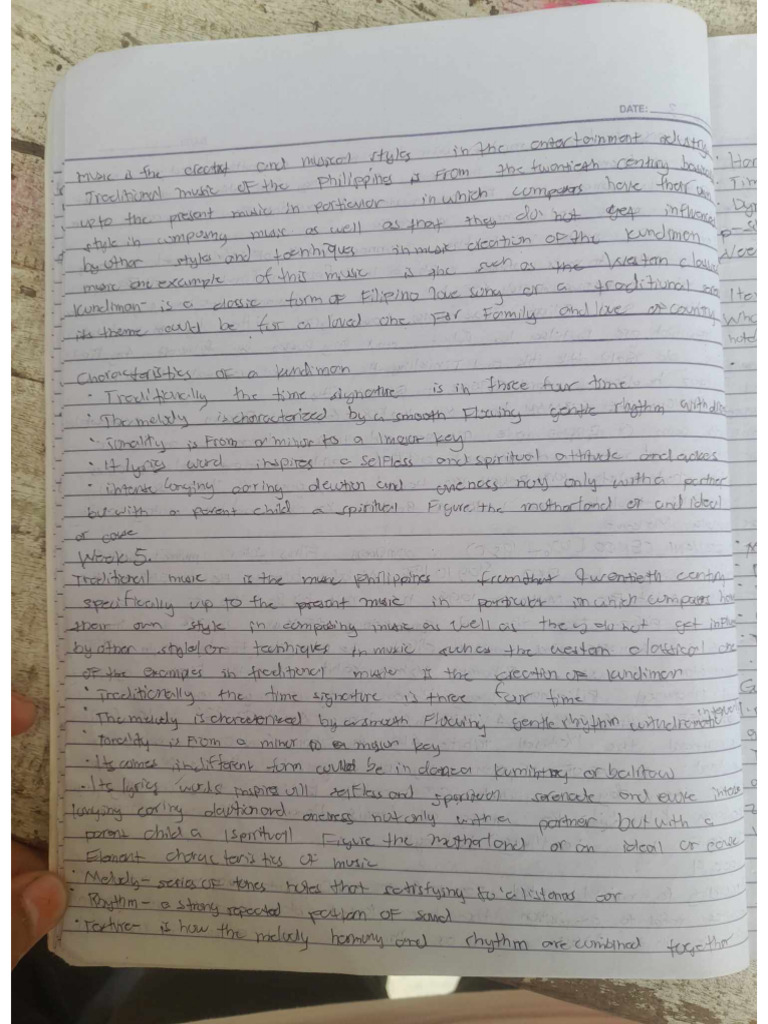 DATE:
Music is the and musical styles in the entertainment
Traditional music of the Philippines is from the twentieth century
up to the present music in particular in which composers have their own
style in composing music as well as that they do not get influenced
by other styles and techniques in music creation of the kundiman
music one example of this music is the such as the Western
kundiman- is a classic form of Filipino love song or a traditional
its theme could be for a loved one For Family and love of country
Characteristics of a kundiman
• Traditionally the time signature is in three four time
• The melody is characterized by a smooth Flowing gentle rhythm with
• Tonality is From a minor to a major key
• It lyrics word inspires a selfless and spiritual attitude and
• intense longing caring devotion and oneness not only with a partner
but with a parent child a spiritual Figure the motherland or and ideal
or cause
Week 5.
Traditional music is the music philippines from that twentieth century
specifically up to the present music in particular in which composers
their own style in composing music as well as the do not get
by other styles or techniques in music such as the western classical one
of the examples in traditional music is the creation of kundiman
• Traditionally the time signature is three four time
• The melody is characterized by a smooth Flowing gentle rhythm with dramatic
• Tonality is From a minor to a major key
• Its comes in different form could be in dance or
• Its lyrics words inspires will selfless and serenade and evoke
longing caring devotion and oneness not only with a partner but with a
parent child a (spiritual) Figure the motherland or an ideal or cause
Element characteristics of music
• Melody- series of tones notes that satisfying to a listenas ear
• Rhythm- a strong repeated pattern of sound
• Texture- is how the melody harmony and rhythm are combined together